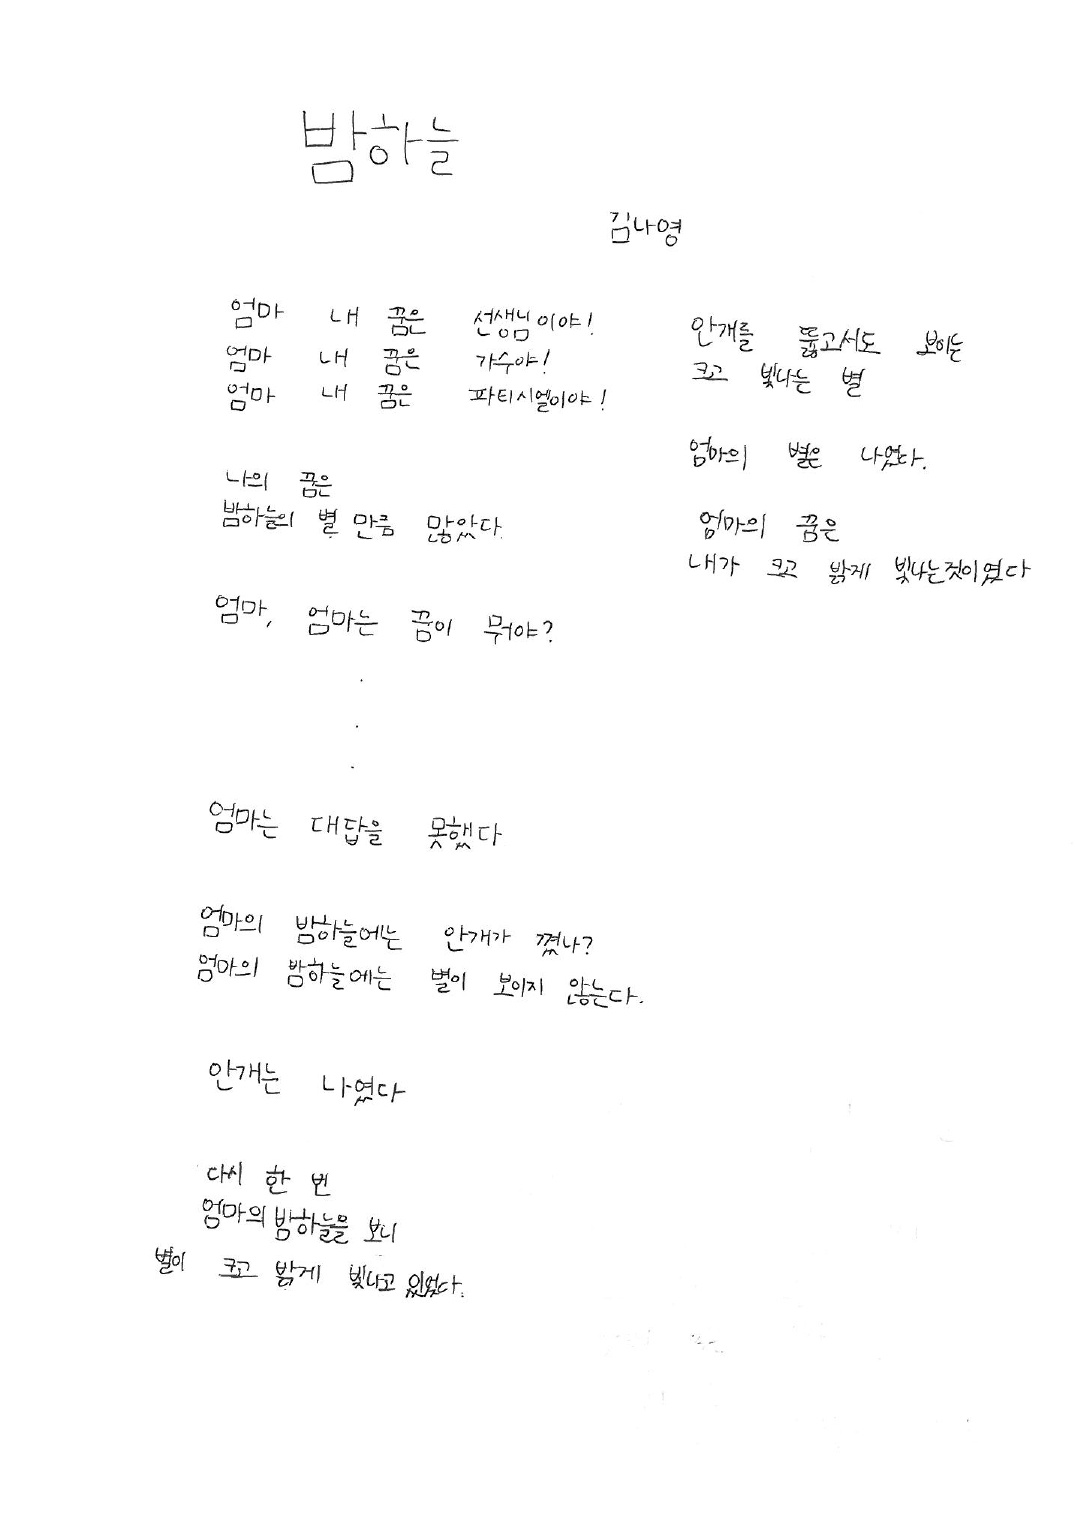 밤하늘
김나영
엄마 내 꿈은 선생님이야!
엄마 내 꿈은 가수야!
엄마 내 꿈은 파티시엘이야!
나의 꿈은
밤하늘의 별 만큼 많았다.
엄마, 엄마는 꿈이 뭐야?
.
.
.
엄마는 대답을 못했다
엄마의 밤하늘에는 안개가 꼈나?
엄마의 밤하늘에는 별이 보이지 않는다.
안개는 나였다
다시 한 번
엄마의 밤하늘을 보니
별이 크고 밝게 빛나고 있었다.
안개를 뚫고서도 보이는
크고 빛나는 별
엄마의 별은 나였다.
엄마의 꿈은
내가 크고 밝게 빛나는것이였다